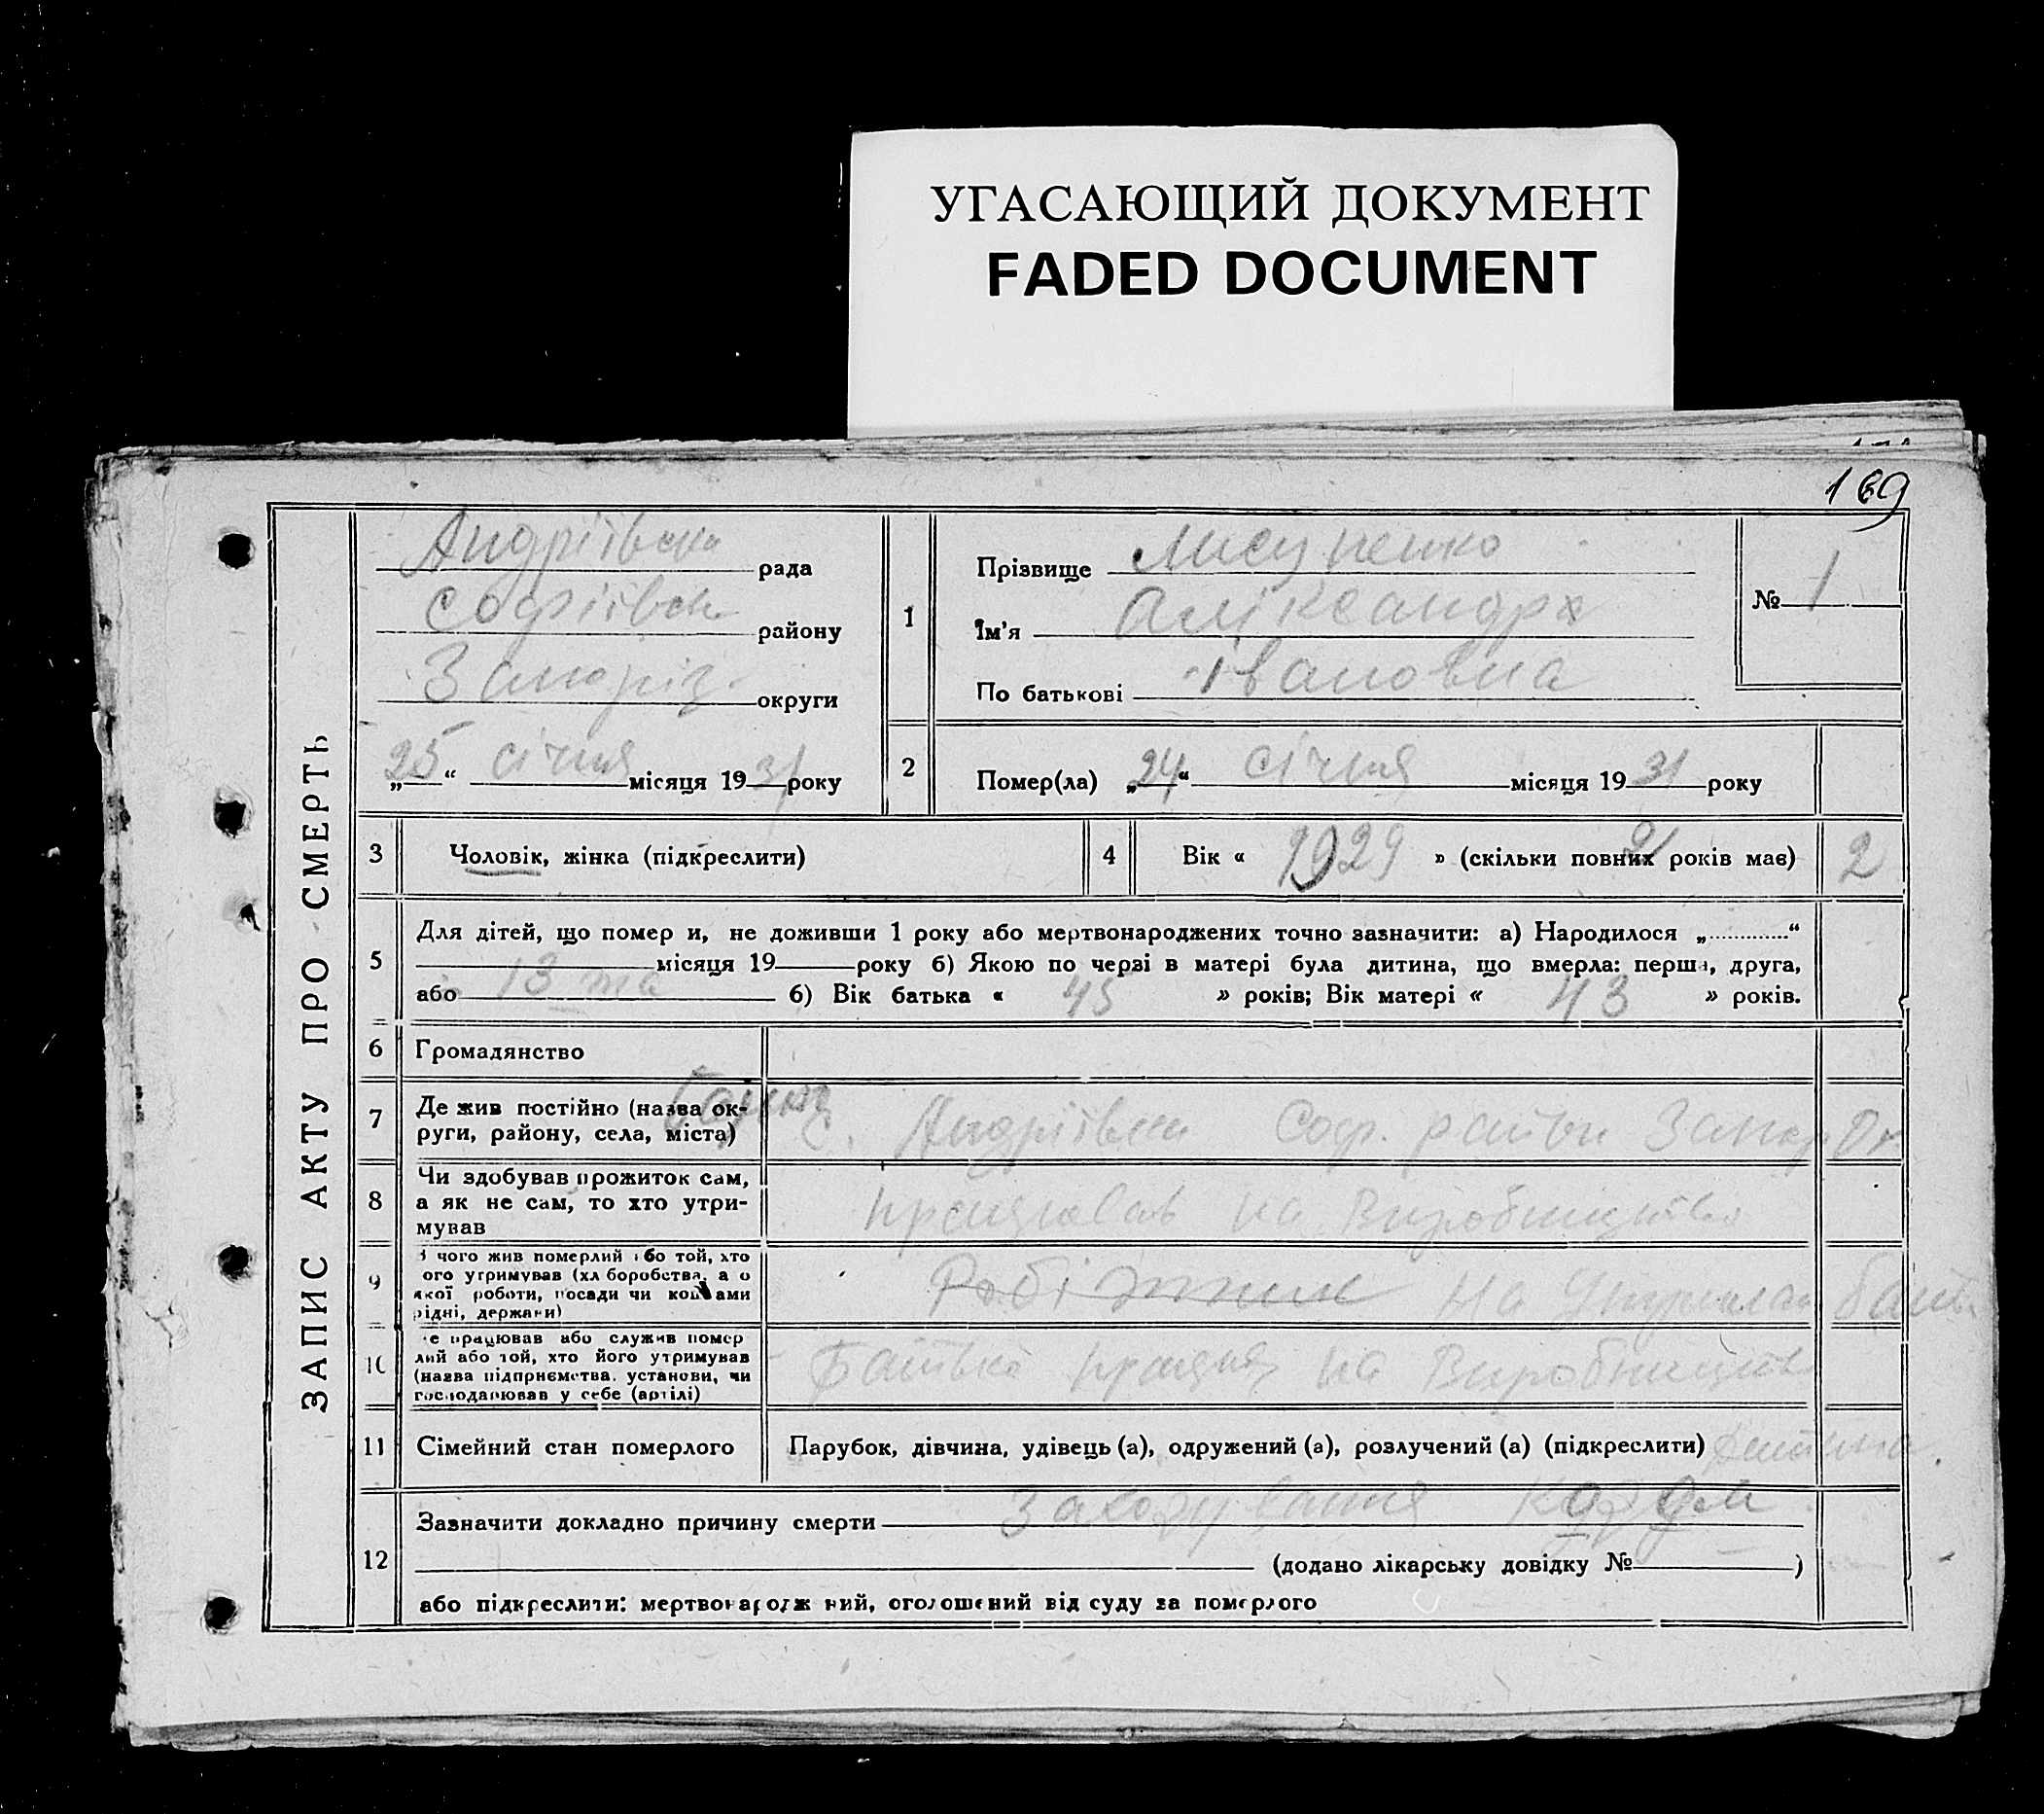 УГАСАЮЩИЙ ДОКУМЕНТ
FADED DOCUMENT
169
ЗАПИС АКТУ ПРО СМЕРТЬ
Андріївська рада
Софіївськ району
Запоріз. округи
„25“ січня місяця 1931 року
1
Прізвище
Ім'я Аліксандра
По батькові Івановна
№ 1
2 Помер(ла) „24“ січня місяця 1931 року
3 Чоловік, жінка (підкреслити)
4 Вік « 1929 » (скільки повних років має) 2
2
5 Для дітей, що померли, не доживши 1 року або мертвонароджених точно зазначити: а) Народилося „............“
місяця 19 року б) Якою по черзі в матері була дитина, що вмерла: перша, друга,
або 13 та б) Вік батька « 45 » років; Вік матері « 43 » років.
6 Громадянство
7 Де жив постійно (назва ок-
руги, району, села, міста)
с. Андріївка Соф. району Запор Ок
8 Чи здобував прожиток сам,
а як не сам, то хто утри-
мував
працював на Виробництво
9 З чого жив померлий або той, хто
його утримував (хліборобства, а о
якої роботи, посади чи коштами
рідні, держави)
Робітник На Утриман бать
10 Де працював або служив помер
лий або той, хто його утримував
(назва підприємства, установи, чи
господарював у себе (артілі)
Батько працяв на Виробництв
11 Сімейний стан померлого Парубок, дівчина, удівець (а), одружений (а), розлучений (а) (підкреслити) Дитина.
12 Зазначити докладно причину смерти
(додано лікарську довідку № )
або підкреслити: мертвонароджений, оголошений від суду за померлого